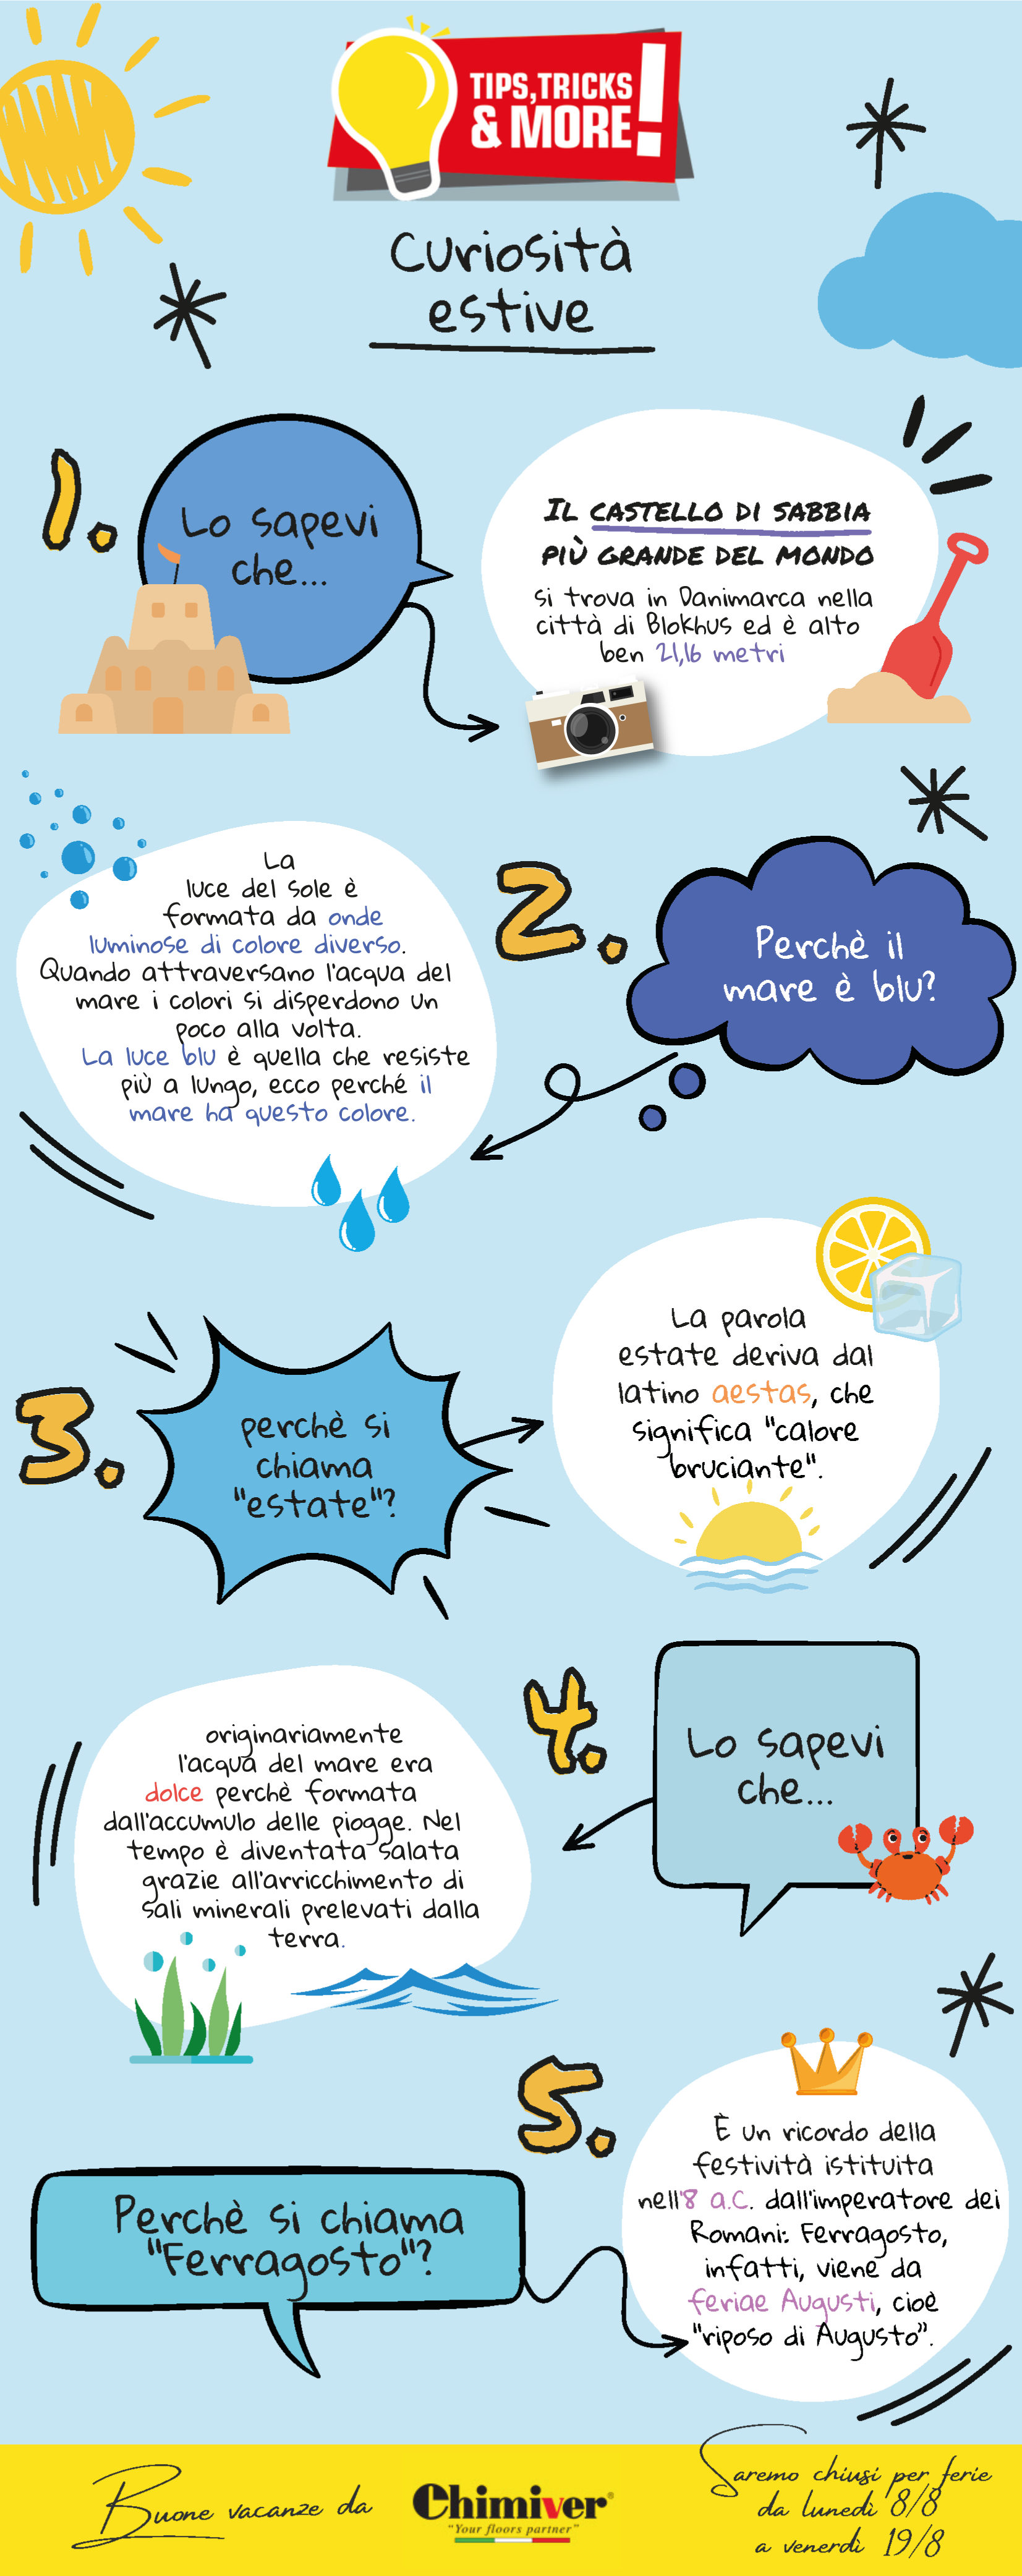 TIPS, TRICKS
& MORE!
Curiosità
estive
1.
Lo sapevi
che...
IL CASTELLO DI SABBIA
PIÙ GRANDE DEL MONDO
si trova in Danimarca nella
città di Blokhus ed è alto
ben 21,16 metri
2.
Perchè il
mare è blu?
La
luce del sole è
formata da onde
luminose di colore diverso.
Quando attraversano l'acqua del
mare i colori si disperdono un
poco alla volta.
La luce blu è quella che resiste
più a lungo, ecco perché il
mare ha questo colore.
3.
perchè si
chiama
"estate"?
La parola
estate deriva dal
latino aestas, che
significa "calore
bruciante".
4.
Lo sapevi
che...
originariamente
l'acqua del mare era
dolce perchè formata
dall'accumulo delle piogge. Nel
tempo è diventata salata
grazie all'arricchimento di
sali minerali prelevati dalla
terra.
5.
Perchè si chiama
"Ferragosto"?
È un ricordo della
festività istituita
nell'8 a.C. dall'imperatore dei
Romani: Ferragosto,
infatti, viene da
feriae Augusti, cioè
"riposo di Augusto".
Buone vacanze da
Chimiver®
"Your floors partner"
Saremo chiusi per ferie
da lunedì 8/8
a venerdì 19/8